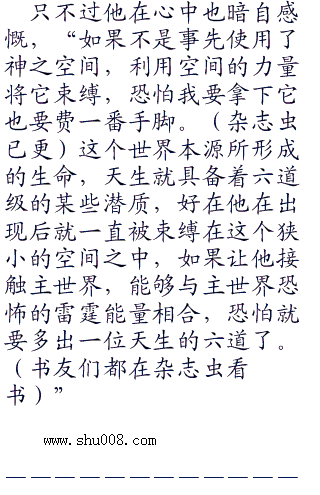 只不过他在心中也暗自感
慨，“如果不是事先使用了
神之空间，利用空间的力量
将它束缚，恐怕我要拿下它
也要费一番手脚。（杂志虫
已更）这个世界本源所形成
的生命，天生就具备着六道
级的某些潜质，好在他在出
现后就一直被束缚在这个狭
小的空间之中，如果让他接
触主世界，能够与主世界恐
怖的雷霆能量相合，恐怕就
要多出一位天生的六道了。
（书友们都在杂志虫看
书）”
www.shu008.com
＿＿＿＿＿＿＿＿＿＿＿＿